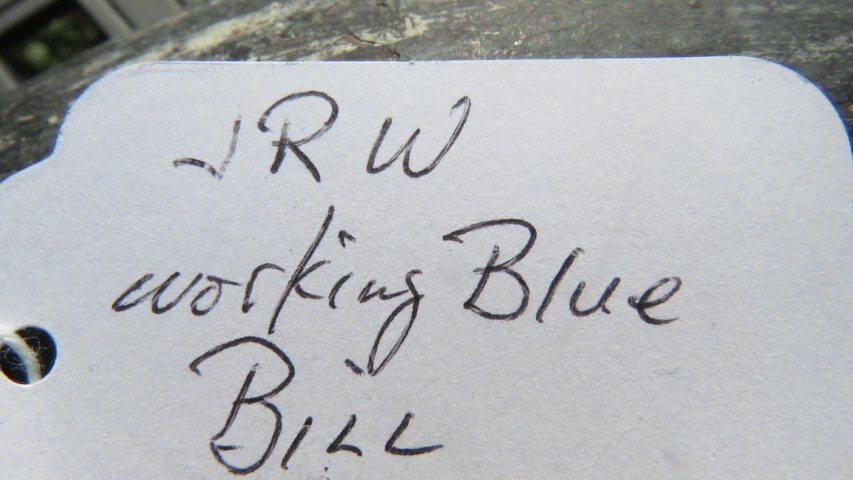 JRW
working Blue
BILL